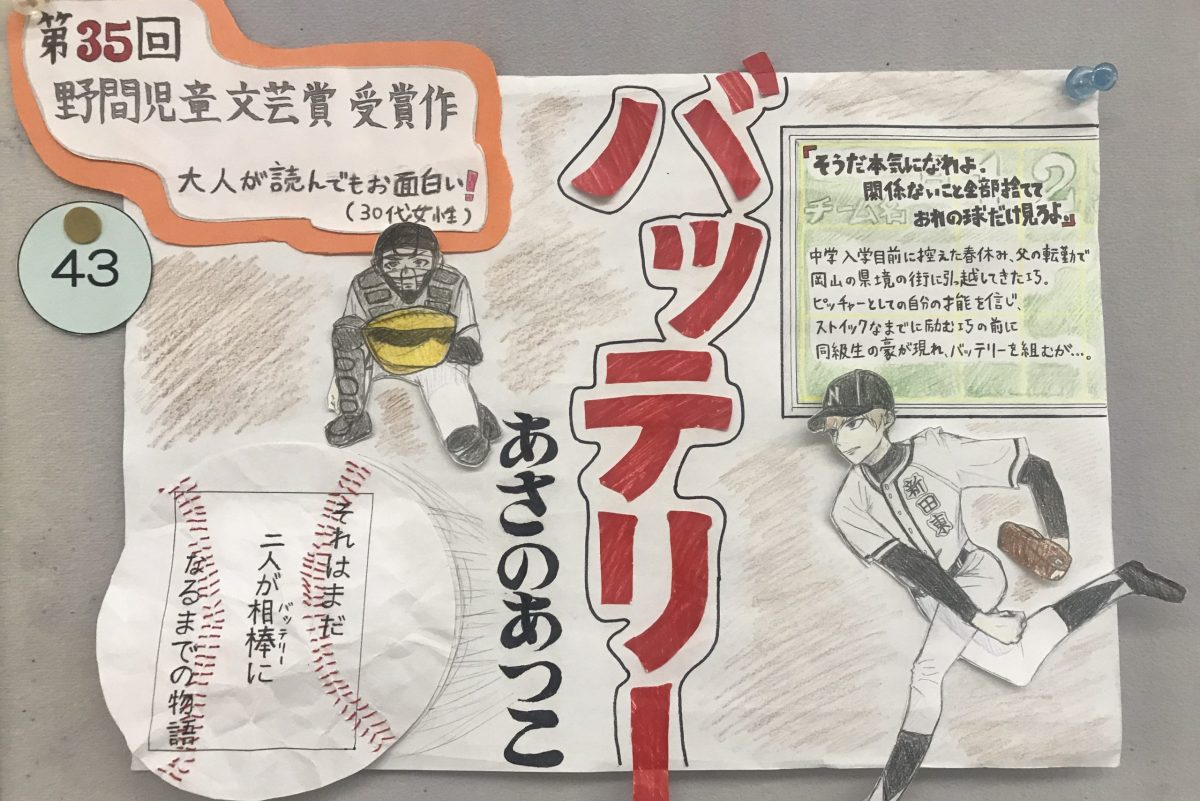 第35回
野間児童文芸賞 受賞作
大人が読んでもお面白い!
(30代女性)
43
バッテリー
あさのあつこ
『そうだ本気になれよ。
関係ないこと全部捨てて
おれの球だけ見ろよ。』
中学入学目前に控えた春休み、父の転勤で
岡山の県境の街に引っ越してきた巧。
ピッチャーとしての自分の才能を信じ、
ストイックなまでに励む巧の前に
同級生の豪が現れ、バッテリーを組むが…。
2
チーム名
N
新田東
それはまだ
二人が相棒に
バッテリー
なるまでの物語